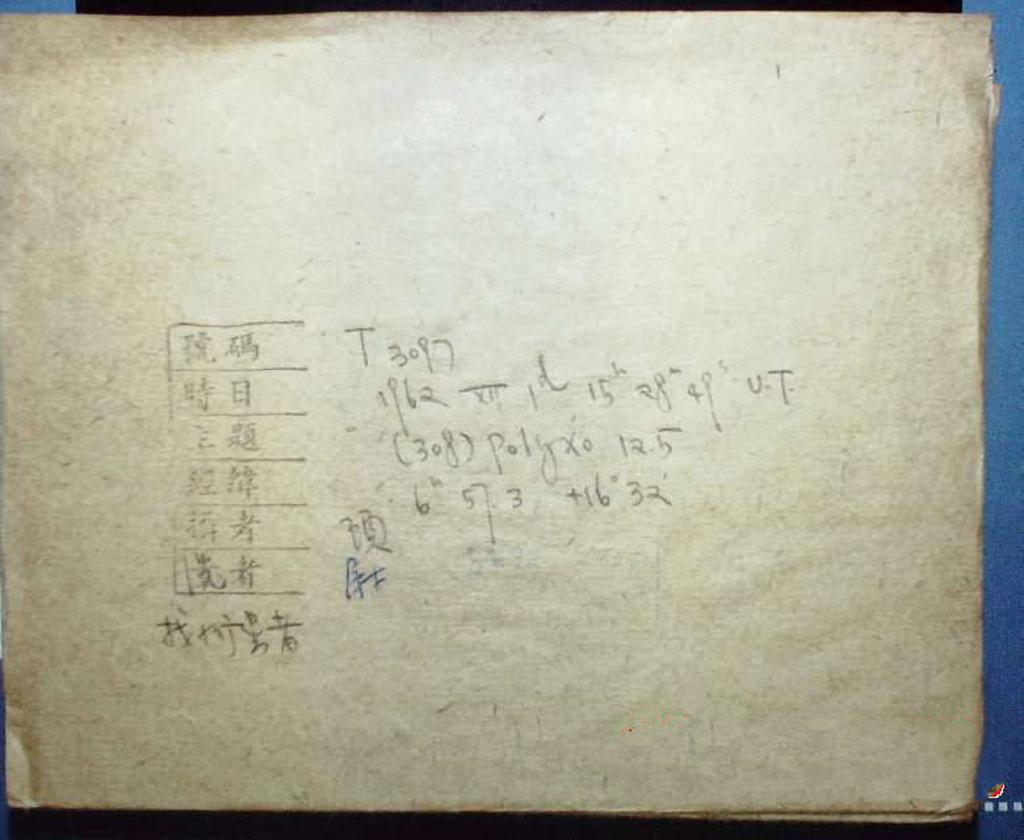 號碼 T 3097
時日 1962 XII 1ᵈ 15ʰ 28ᵐ 49ˢ U.T.
主題 (308) Polyxo 12.5
經緯 6ʰ 57.3 +16° 32'
者 項
者
找 者